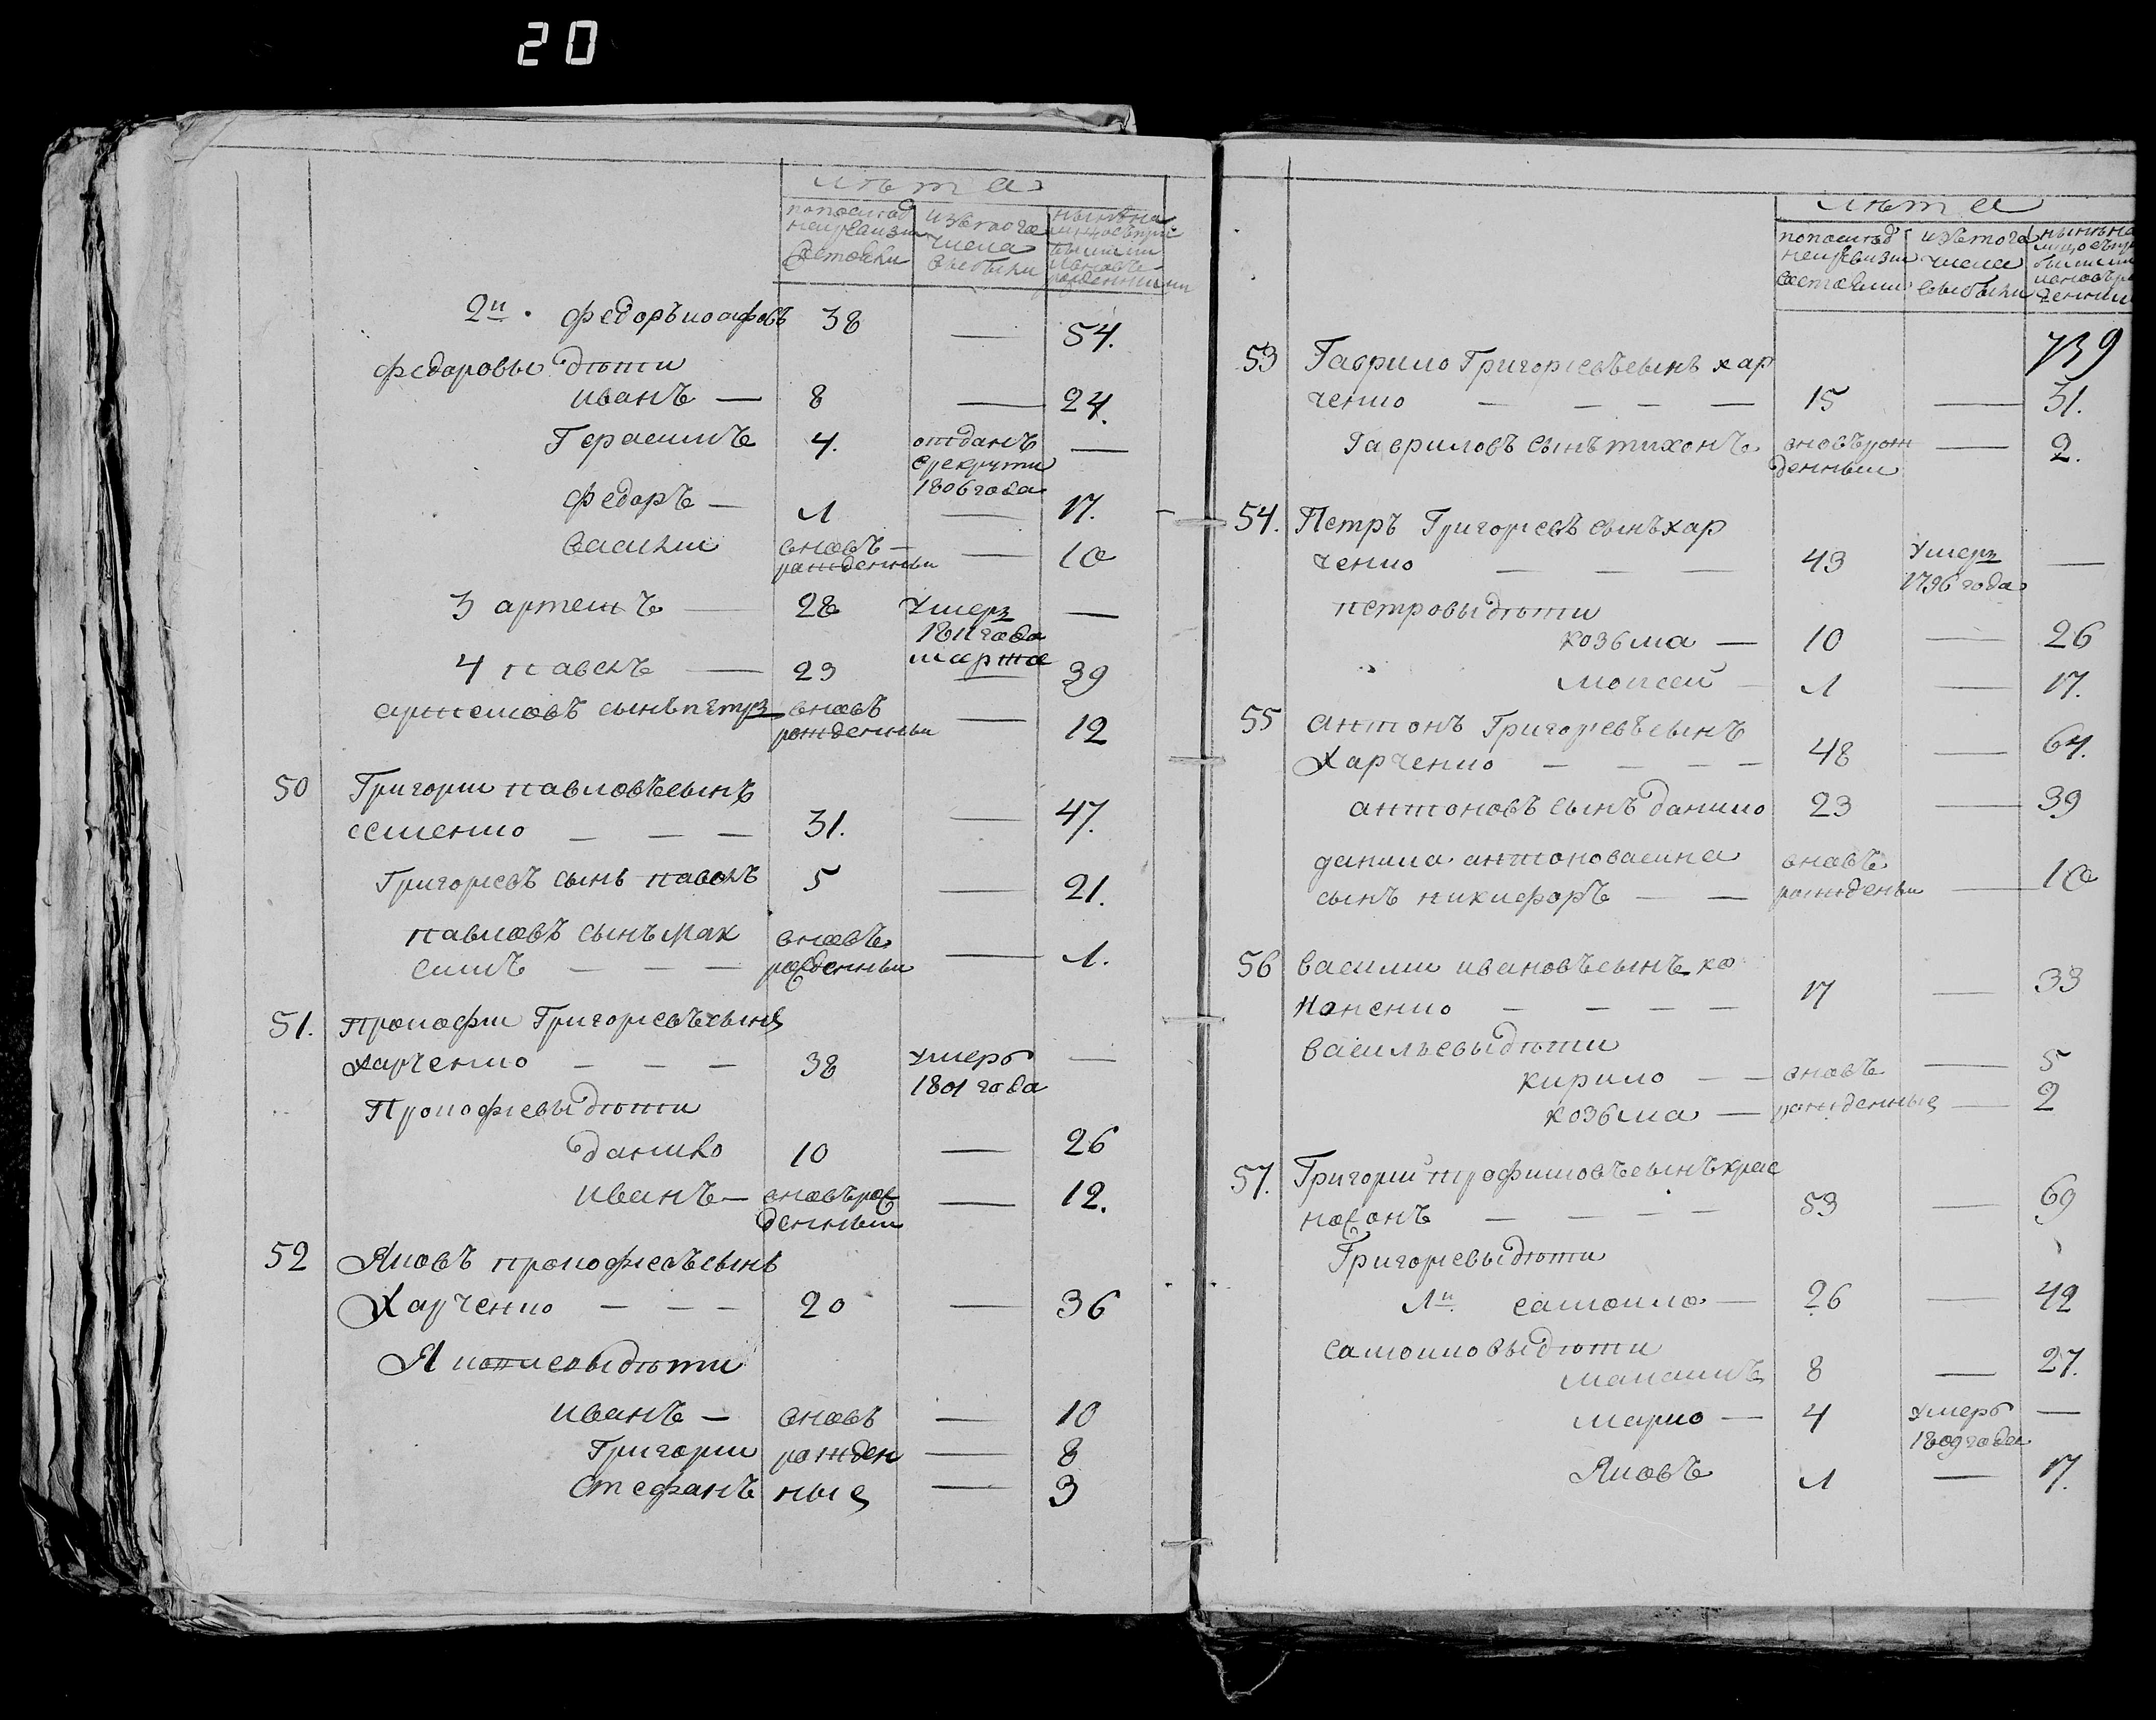 20
лѣта
попослѣд
нейревизіи
состояли
изътого
числа
выбыли
нынѣна
лицосъпри
былыми
ивновь
рожденными
2й. Федоръ иоаѳовъ 38 — 54.
Федоровы дѣти
иванъ — 8 — 24.
Герасимъ 4. отданъ —
врекруты
1806 года
Федоръ — 1 — 17.
Василии вновь — — 10
рожденныи
3 артемъ — 28 Умеръ —
1811 года
марта
4 павелъ — 23 — 39
артемовъ сынъ петръ вновь — 12
рожденныи
50 Григории павловъ сынъ
семенко — — — 31. — 47.
Григорьевъ сынъ павелъ 5 — 21.
павловъ сынъ мак вновь — 1.
симъ — — — рожденныи
51. Прокофии Григорьевъ сынъ
харченко — — — 38 Умеръ —
1801 года
Прокофьевы дѣти
данило 10 — 26
иванъ — вновърож — 12.
денныи
52 Яковъ прокофьевъ сынъ
Харченко — — — 20 — 36
Яковлевы дѣти
иванъ — вновь — 10
Григории рожден — 8
Стефанъ ные — 3
лѣта
попослѣд
нейревизіи
состояли
изътого
числа
выбыли
нынѣна
лицосъпри
былыми
ивновърож
денными
739
53 Гаврило Григорьевъ сынъ хар
ченко — — — — 15 — 31.
Гавриловъ сынъ тихонъ вновърож — 2.
денныи
54. Петръ Григорьевъ сынъ хар
ченко — — — 43 Умеръ —
1796 года
петровы дѣти
козьма — 10 — 26
Моисей — 1 — 17.
55 антонъ Григорьевъ сынъ
Харченко — — — — 48 — 64.
антоновъ сынъ данило 23 — 39
данила антоновасина вновь
сынъ никифоръ — — рожденыи — 10
56 василии ивановъ сынъ ко
ноненко — — — — 17 — 33
васильевы дѣти
кирило — — вновь — 5
козьма — рожденные — 2
57. Григорий трофимовъ сынъ крас
ножонъ — — — — 53 — 69
Григорьевы дѣти
1й самоило — 26 — 42
самоиловы дѣти
максимъ 8 — 27.
марко — 4 Умеръ —
1809 года
Яковъ 1 — 17.